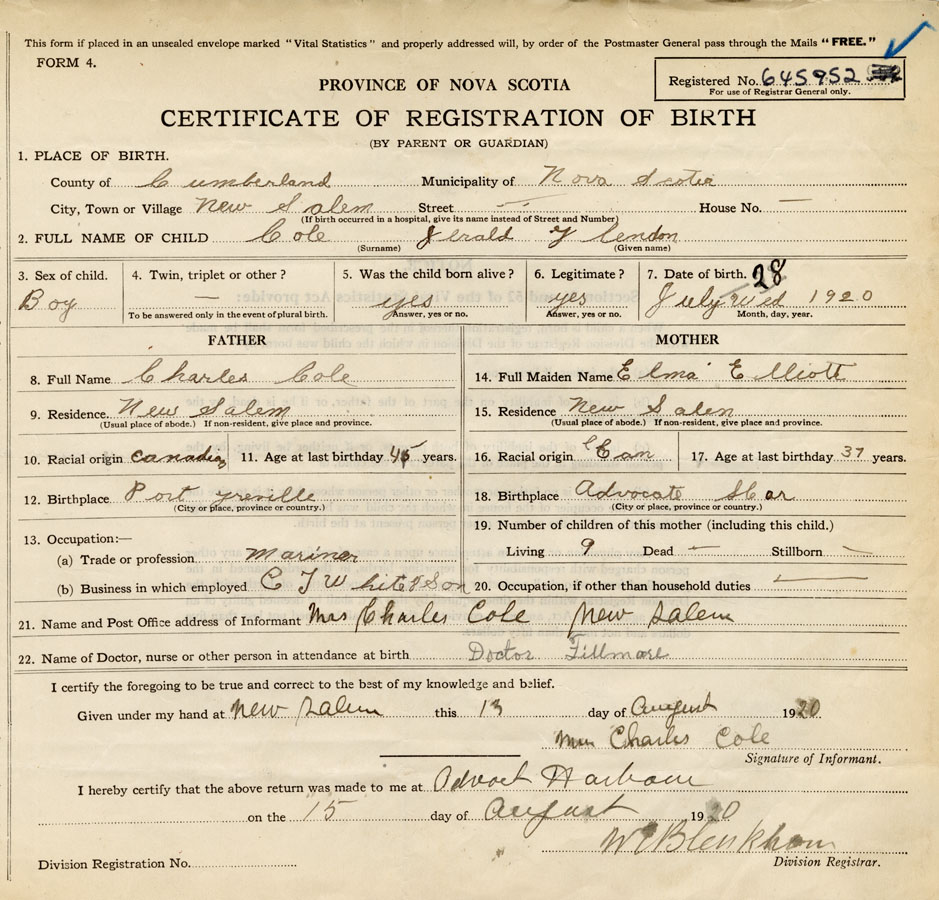 This form if placed in an unsealed envelope marked "Vital Statistics" and properly addressed will, by order of the Postmaster General pass through the Mails "FREE."
FORM 4.
Registered No. 645952
For use of Registrar General only.
PROVINCE OF NOVA SCOTIA
CERTIFICATE OF REGISTRATION OF BIRTH
(BY PARENT OR GUARDIAN)
1. PLACE OF BIRTH.
County of Cumberland Municipality of Nova Scotia
City, Town or Village New Salem Street — House No. —
(If birth occurred in a hospital, give its name instead of Street and Number)
2. FULL NAME OF CHILD Cole Jerald Glendon
(Surname) (Given name)
3. Sex of child. 4. Twin, triplet or other? 5. Was the child born alive? 6. Legitimate? 7. Date of birth. 28
Boy — yes yes July Wed 1920
To be answered only in the event of plural birth. Answer, yes or no. Answer, yes or no. Month, day, year.
FATHER
8. Full Name Charles Cole
9. Residence. New Salem
(Usual place of abode.) If non-resident, give place and province.
10. Racial origin Canadian 11. Age at last birthday 45 years.
12. Birthplace Port Greville
(City or place, province or country.)
13. Occupation:—
(a) Trade or profession Mariner
(b) Business in which employed C T White & Son
MOTHER
14. Full Maiden Name Elma Elliott
15. Residence New Salen
(Usual place of abode.) If non-resident, give place and province.
16. Racial origin Can 17. Age at last birthday 37 years.
18. Birthplace Advocate Har
(City or place, province or country.)
19. Number of children of this mother (including this child.)
Living 9 Dead — Stillborn —
20. Occupation, if other than household duties —
21. Name and Post Office address of Informant Mrs Charles Cole New Salem
22. Name of Doctor, nurse or other person in attendance at birth Doctor Fillmore
I certify the foregoing to be true and correct to the best of my knowledge and belief.
Given under my hand at New Salem this 13 day of August 1920
Mrs Charles Cole
Signature of Informant.
I hereby certify that the above return was made to me at Advoct Harbour
on the 15 day of August 1920
W E Blenkhorn
Division Registration No. Division Registrar.